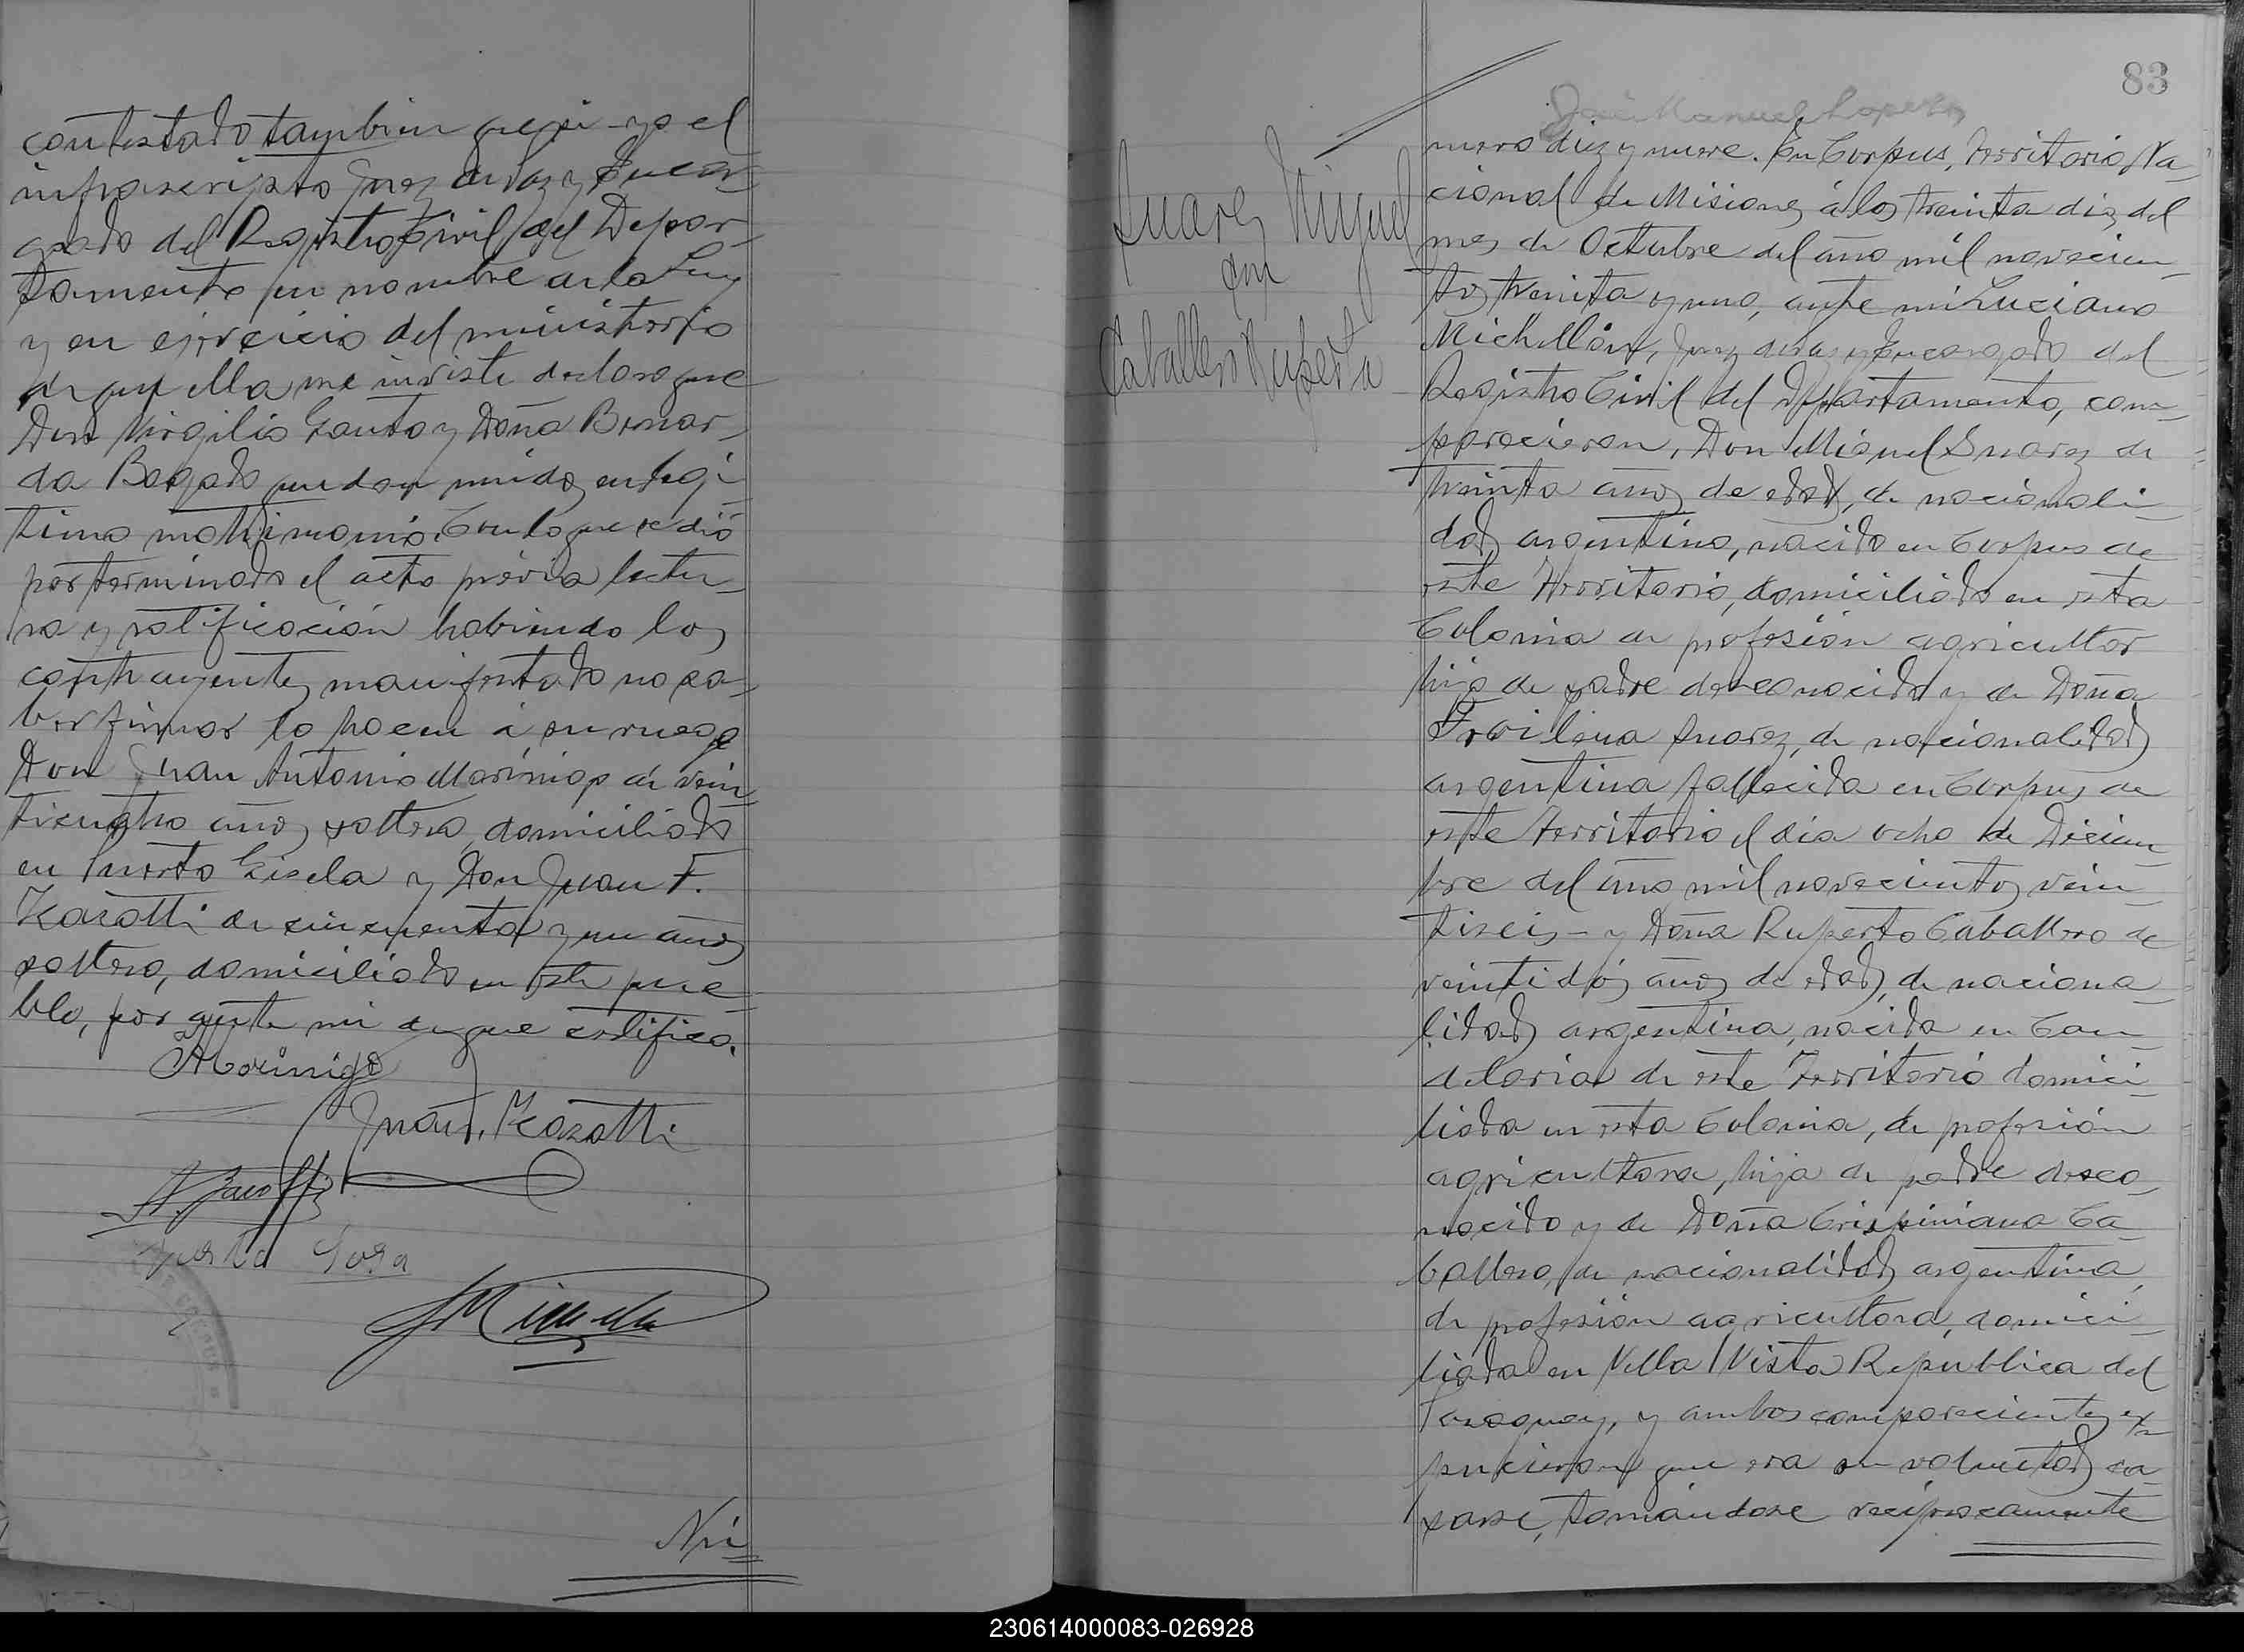 contestado tambien que si - yo el
infrascripto Juez de Paz y Encar-
gado del Registro Civil del Depar-
tamento en nombre de la Ley
y en ejercicio del ministerio
de que ella me inviste declaro que
Don Virgilio Fauto y Doña Bernar-
da Bogado quedan unidos en legi-
timo matrimonio. Con lo que se dió
por terminado el acto prévia lectu-
ra y ratificación habiendo los
contrayentes manifestado no sa-
ber firmar lo hacen á su ruego
Don Juan Antonio de vein
ticuatro años soltero, domiciliado
en Puerto Gisela y Don Juan F.
Kazatti de cincuenta y un años
soltero, domiciliado en este pue-
blo, por ante mi de que certifico.
Juan F. Kazatti
Sosa
Nú
83
José Manuel Lopez
Suarez Miguel
con
Caballero Ruperta
mero diez y nueve. En Corpus, Territorio Na-
cional de Misiones á los treinta dias del
mes de Octubre del año mil novecien-
tos treinta y uno, ante mi Luciano
Michellón, Juez de Paz y Encargado del
Registro Civil del Departamento, com-
parecieron, Don Miguel Suarez de
treinta años de edad, de nacionali-
dad argentino, nacido en Corpus de
este Territorio, domiciliado en esta
Colonia de profesión agricultor
hijo de padre desconocido y de Doña
Suarez, de nacionalidad
argentina fallecida en Corpus de
este Territorio el dia ocho de Diciem-
bre del año mil novecientos vein-
tiseis - y Doña Ruperta Caballero de
veintidós años de edad, de naciona-
lidad argentina, nacida en Can-
delaria de este Territorio domici-
liada en esta Colonia, de profesión
agricultora, hija de padre desco-
nocido y de Doña Crispiniana Ca-
ballero, de nacionalidad argentina,
de profesión agricultora, domici-
liada en Vella Vista Republica del
Paraguay, y ambos comparecientes ex-
pusieron que era su voluntad ca-
sarse, tomándose reciprocamente
230614000083-026928